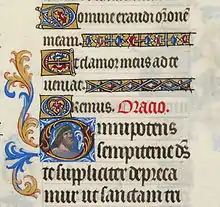 Domine exaudi orōnem
meam.
Et clamor meus ad te
veniat.
Oremus. Oratio.
Omnipotens
sempiterne ds̄
te suppliciter depreca
mur ut sanctam ecc